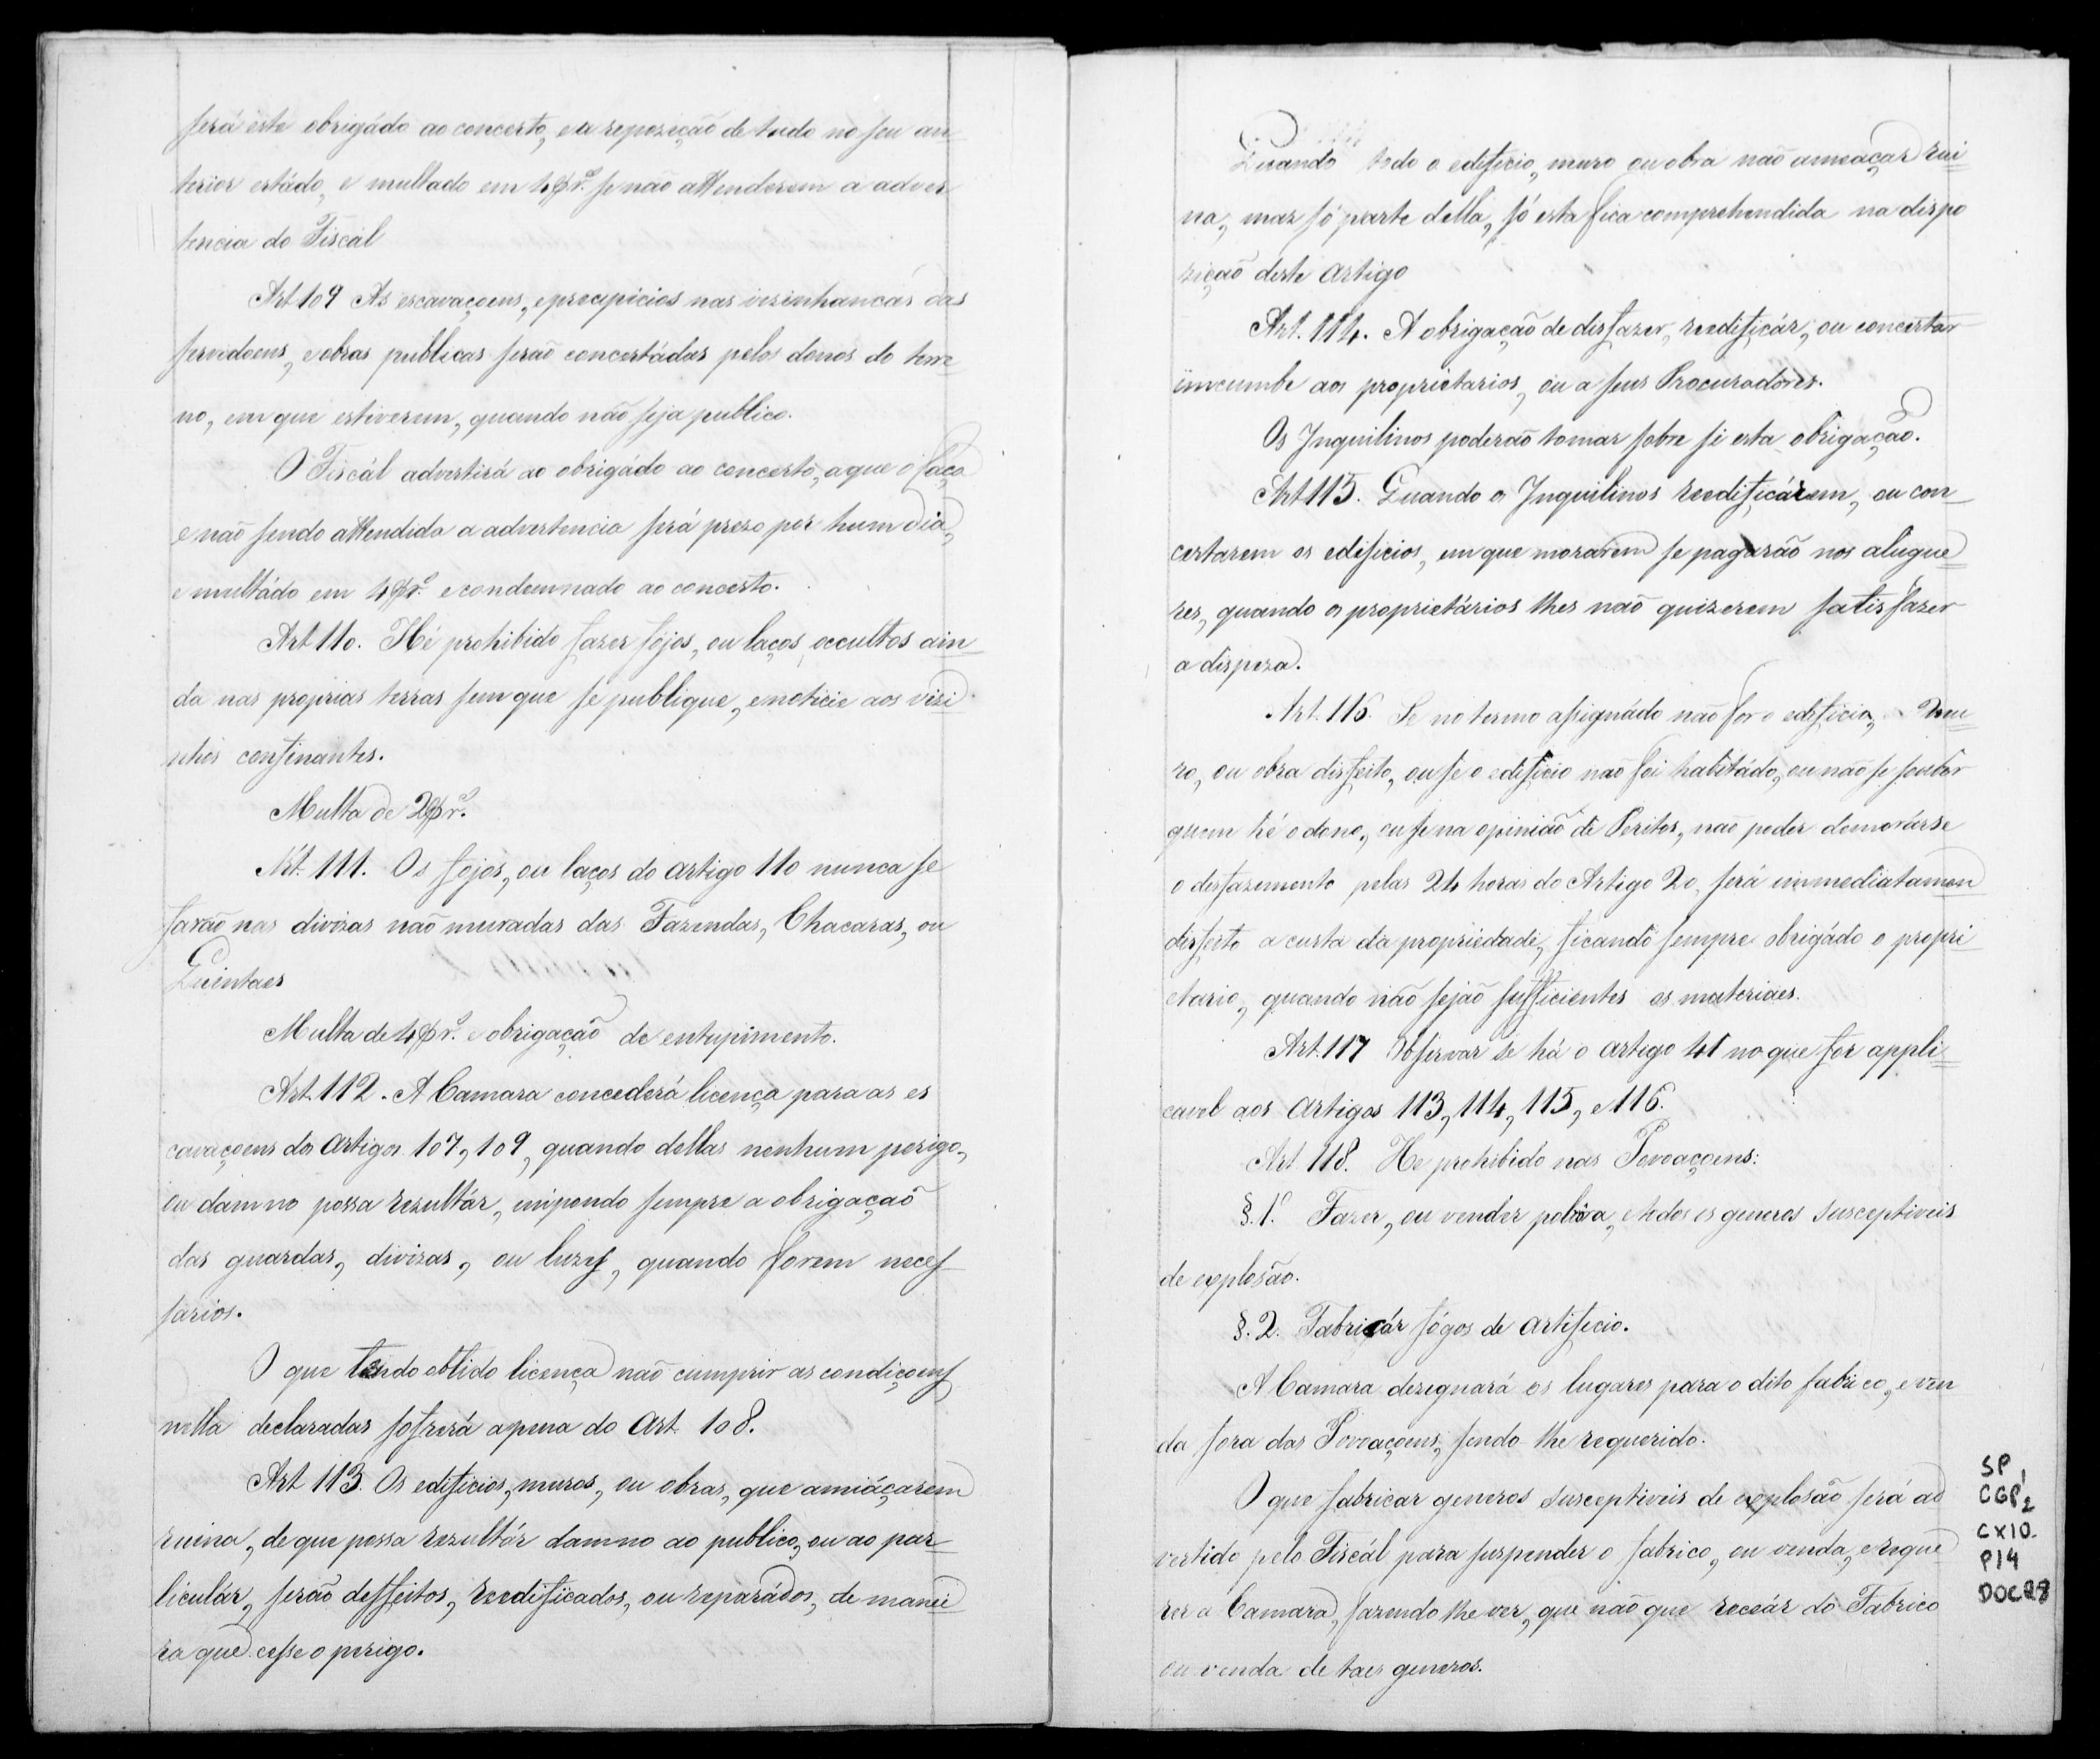 será este obrigádo ao concerto, e a repozição de tudo no seu an=
terior estádo, e multado em 4$rs. se não attenderem a adver
tencia do Fiscal
Art 109 As escavaçoens, e precipicios nas vizinhancas das
servidoens, e obras publicas serão concertádas pelos donos do terre
no, em que estiverem, quando não seja publico.
O Fiscál advertirá ao obrigádo ao concerto, a que o faça
e não sendo attendida a advertencia será prezo por hum dia,
e multádo em 4$rs. e condemnado ao concerto.
Art 110. Hé prohibido fazer fojos, ou laços occultos ain=
da nas proprias terras sem que se publique, e noticie aos vizi
nhos confinantes.
Multa de 2$rs.
Art. 111. Os fojos, ou laços do artigo 110 nunca se
farão nas divizas não muradas das Fazendas, Chacaras, ou
Quintaes
Multa de 4$rs. e obrigação de entupimento.
Art. 112. A Camara concederá licença para as es
cavaçoens dos Artigos 107, 109, quando dellas nenhum perigo,
ou damno possa rezultár, impondo sempre a obrigação
das guardas, divizas, ou luzes, quando forem neces
sarios.
O que tendo obtido licença não cumprir as condiçoens
nella declaradas sofrerá a pena do Art. 108.
Art 113. Os edificios, muros, ou obras, que amiáçarem
ruina, de que possa rezultár damno ao publico, ou ao par=
ticulár, serão desfeitos, reedificados, ou reparádos, de manei
ra que cesse o perigo.
Quando todo o edificio, muro ou obra não ameaçar rui
na, mas só parte della, só esta fica comprehendida na dispo
zição deste artigo
Art. 114. A obrigação de disfazer, reedificár, ou concertar
imcumbe aos proprietarios, ou a seus Procuradores.
Os Inquilinos poderão tomar sobre si esta obrigação.
Art 115. Quando os Inquilinos reedificárem, ou con=
certarem os edificios, em que morarem se pagarão nos alugue
res, quando os proprietários lhes não quizerem satisfazer
a dispeza.
Art. 116. Se no termo assignádo não for o edificio, mu=
ro, ou obra disfeito, ou se o edificio não foi habitádo, ou não se souber
quem hé o dono, ou se na opinião de Peritos, não poder demorárse
o desfazimento pelas 24 horas do Artigo 20, será immediatamen
disfeito a custa da propriedade, ficando sempre obrigádo o propri
etario, quando não sejão sufficientes os materiaes.
Art. 117 Observar se há o artigo 41 no que for appli=
cavel aos Artigos 113, 114, 115, e 116.
Art 118. He prohibido nas Povoaçoens:
§. 1º. Fazer, ou vender polvora, e todos os generos susceptiveis
de explosão.
§. 2. Fabricár fógos de artificio.
A Camara dezignará os lugares para o dito fabrico, e ven
da fora das Povoaçoens, sendo lhe requerido.
O que fabricar generos susceptiveis de explosão será ad
vertido pelo Fiscál para suspender o fabrico, ou venda, e reque
rer a Camara, fazendo lhe ver, que não que receár do Fabrico
ou venda de taes generos.
SP,
CGP2
CX10.
P14
DOC28